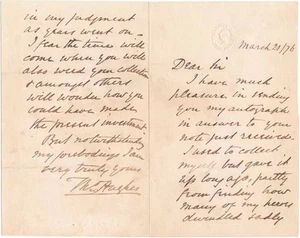 March 20/76
Dear Sir
I have much
pleasure in sending
you my autograph
in answer to your
note just received.
I used to collect
myself but gave it
up long ago, partly
from finding how
many of my heroes
dwindled sadly
in my judgment
as years went on –
I fear the time will
come when you will
also weed your collection
& amongst others
will wonder how you
could have made
the present investment.
But notwithstanding
my forebodings I am
very truly yours
Thos Hughes